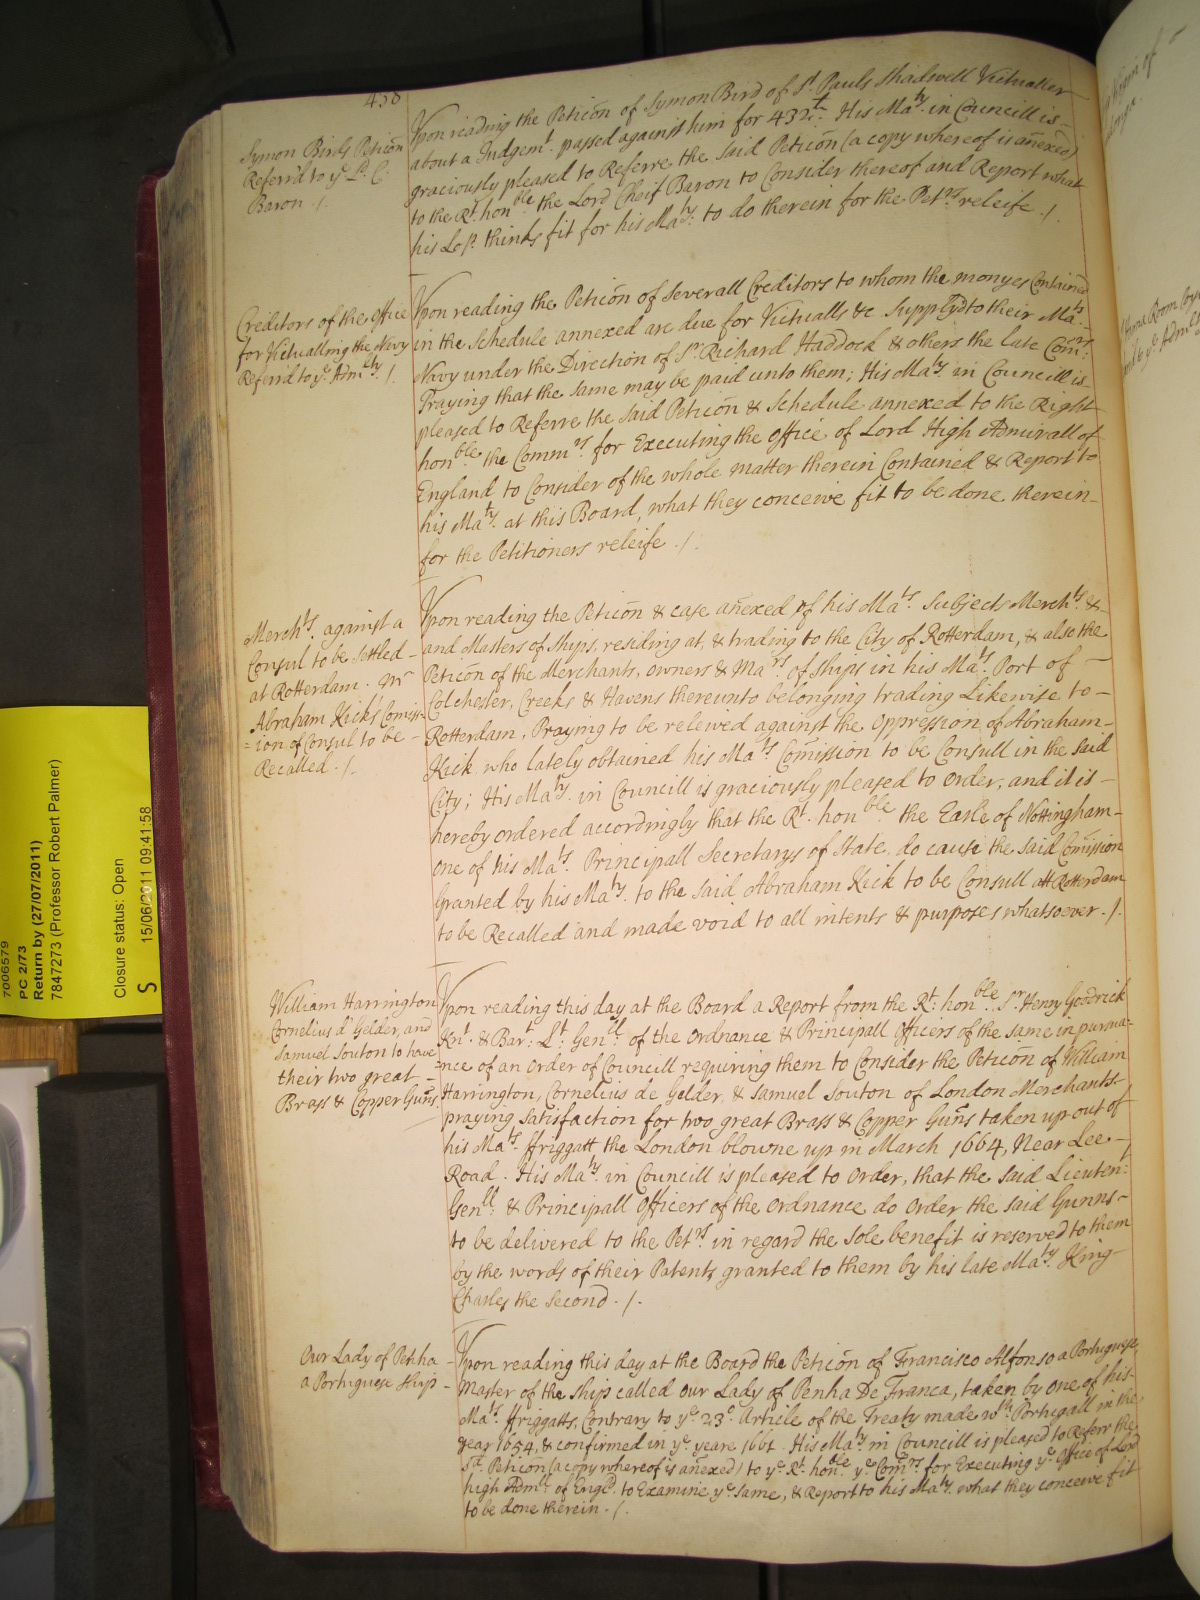 438
Symon Birds Peticōn
Referr'd to yᵉ Lᵈ. C:
Baron ./.
Upon reading the Peticōn of Symon Bird of Sᵗ. Pauls Shadwell Victualler
about a Judgemᵗ. passed against him for 432ˡⁱ: His Maᵗʸ. in Councill is
graciously pleased to Referre the said Peticōn (a copy whereof is añexed)
to the Rᵗ. honᵇˡᵉ the Lord Cheif Baron to Consider thereof and Report what
his Loᵖ. thinks fit for his Maᵗʸ: to do therein for the Petʳˢ releife ./.
Creditors of the Office
for Victualling the Navy
Referr'd to yᵉ Admˡᵗʸ. /.
Upon reading the Peticōn of Severall Creditors to whom the monyes Contained
in the Schedule annexed are due for Victualls &c Supply'd to their Maᵗˢ.
Navy under the Direction of Sʳ. Richard Haddock & others the late Com̄ʳˢ:
Praying that the same may be paid unto them; His Maᵗʸ in Councill is
pleased to Referre the said Peticōn & Schedule annexed to the Right
honᵇˡᵉ. the Commʳˢ. for Executing the Office of Lord High Admirall of
England to Consider of the whole matter therein Contained & Report to
his Maᵗʸ. at this Board, what they conceive fit to be done therein
for the Petitioners releife ./.
Merchᵗˢ. against a
Consul to be settled
at Rotterdam. Mʳ
Abraham Kicks Com̄iss-
=ion of Consul to be
Recalled ./.
Upon reading the Peticōn & case añexed of his Maᵗˢ. Subjects Merchᵗˢ. &
and Masters of Ships, residing at, & trading to the City of Rotterdam, & also the
Peticōn of the Merchants, Owners & Maʳˢ. of Ships in his Maᵗˢ. Port of
Colchester, Creeks & Havens thereunto belonging trading Likewise to
Rotterdam, Praying to be releived against the Oppression of Abraham
Kick who lately obtained his Maᵗˢ Com̄ission to be Consull in the said
City; His Maᵗʸ. in Councill is graciously pleased to Order, and it is
hereby ordered accordingly that the Rᵗ. honᵇˡᵉ. the Earle of Nottingham
one of his Maᵗˢ. Principall Secretarys of State, do cause the said Com̄ission
Granted by his Maᵗʸ. to the said Abraham Kick to be Consull att Rotterdam
to be Recalled and made void to all intents & purposes whatsoever ./.
William Harrington
Cornelius d' Gelder, and
Samuel Souton to have
their two great
Brass & Copper Guñs.
Upon reading this day at the Board a Report from the Rᵗ: honᵇˡᵉ. Sʳ Henry Goodrick
Knᵗ. & Barᵗ: Lᵗ. Genˡˡ. of the Ordnance & Principall Officers of the same in pursua-
=nce of an Order of Councill requiring them to Consider the Peticōn of William
Harrington, Cornelius de Gelder, & Samuel Souton of London Merchants
praying satisfaction for two great Brass & Copper Guñs taken up out of
his Maᵗˢ. ffriggatt, the London blowne up in March 1664, Near Lee
Road. His Maᵗʸ. in Councill is pleased to Order, that the said Lieutenᵗ:
Genˡˡ. & Principall Officers of the Ordnance do Order the said Gunns
to be delivered to the Petʳˢ. in regard the Sole benefit is reserved to them
by the words of their Patent, granted to them by his late Maᵗʸ. King
Charles the Second ./.
Our Lady of Penha
a Portuguese Ship
Upon reading this day at the Board the Peticōn of Francisco Alfonso a Portuguese
Master of the Ship called Our Lady of Penha De Franca, taken by one of his
Maᵗˢ. ffriggatts, Contrary to yᵉ 23ᵈ. Article of the Treaty made wᵗʰ Portugall in the
year 1654, & confirmed in yᵉ yeare 1661. His Maᵗʸ in Councill is pleased to Referr the
sᵈ. Peticōn (a copy whereof is añexed) to yᵉ Rᵗ honᵇˡᵉ. yᵉ Com̄ʳˢ for Executing yᵉ Office of Lord
high Admˡˡ of Engᵈ. to Examine yᵉ same, & Report to his Maᵗʸ. what they conceive fit
to be done therein ./.
7006579
PC 2/73
Return by (27/07/2011)
7847273 (Professor Robert Palmer)
Closure status: Open
S 15/06/2011 09:41:58